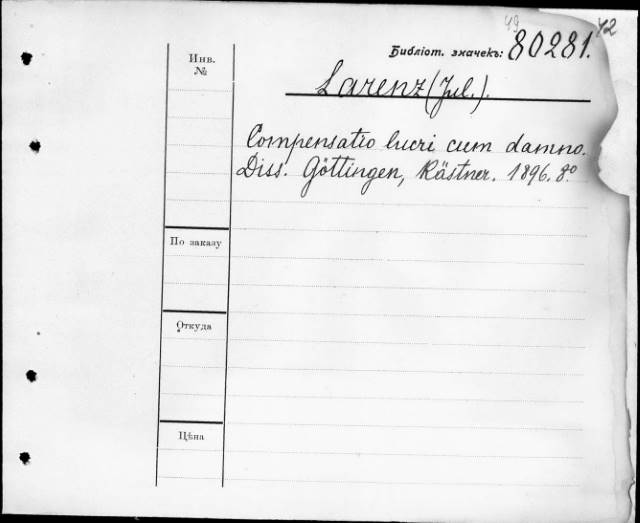 49 42
Библіот. значекъ: 80281.
Инв.
№
Larenz (Jul.).
Compensatio lucri cum damno.
Diss. Göttingen, Kästner. 1896. 8º
По заказу
Откуда
Цѣна